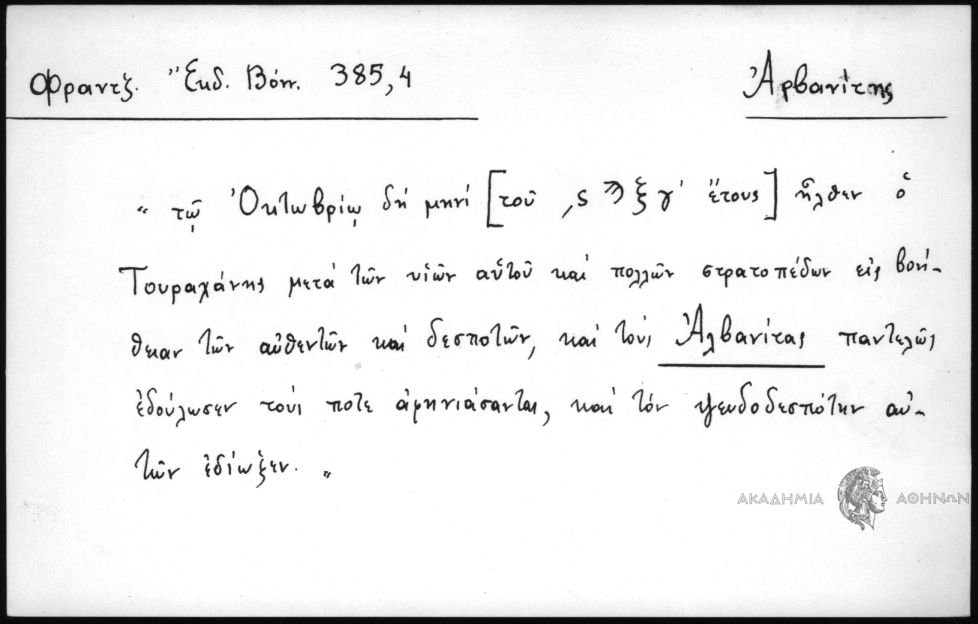 Φραντζ. Ἔκδ. Βόνν. 385,4
Ἀρβανίτης
“ τῷ Ὀκτωβρίῳ δὴ μηνὶ [τοῦ ͵ϛϡξγ' ἔτους] ἦλθεν ὁ
Τουραχάνης μετὰ τῶν υἱῶν αὑτοῦ καὶ πολλῶν στρατοπέδων εἰς βοή-
θειαν τῶν αὐθεντῶν καὶ δεσποτῶν, καὶ τοὺς Ἀλβανίτας παντελῶς
ἐδούλωσεν τούς ποτε ἀφηνιάσαντας, καὶ τὸν ψευδοδεσπότην αὐ-
τῶν ἐδίωξεν. „
ΑΚΑΔΗΜΙΑ ΑΘΗΝΩΝ